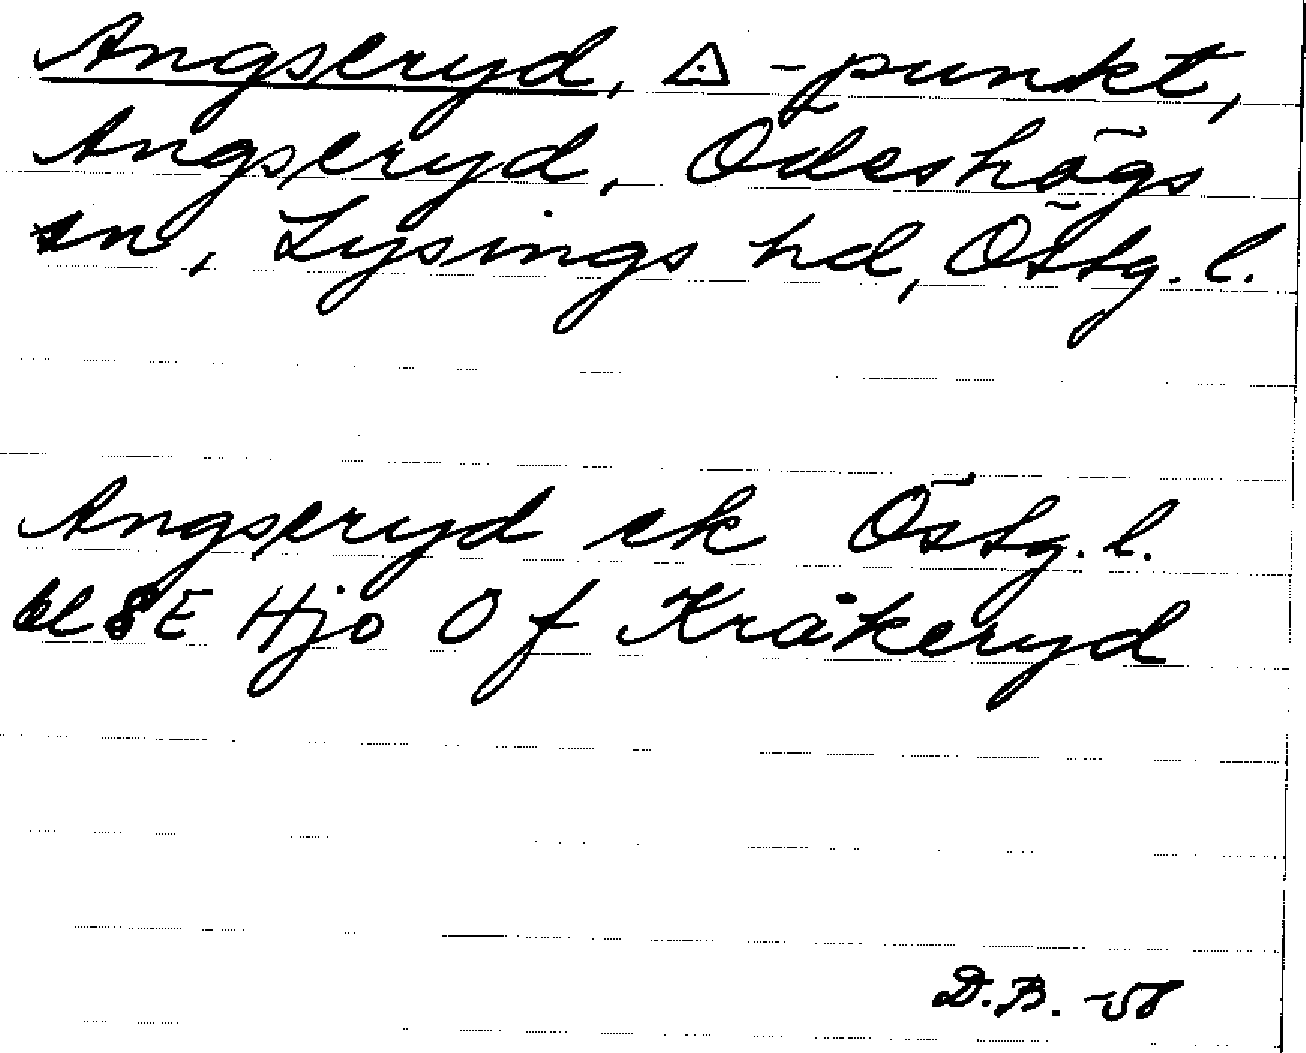 Angseryd, △ -punkt,
Angseryd, Ödeshögs
sn, Lysings hd, Östg. l.
Angseryd ek Östg. l.
bl 8E Hjo O f Kråkeryd
D.B. -58